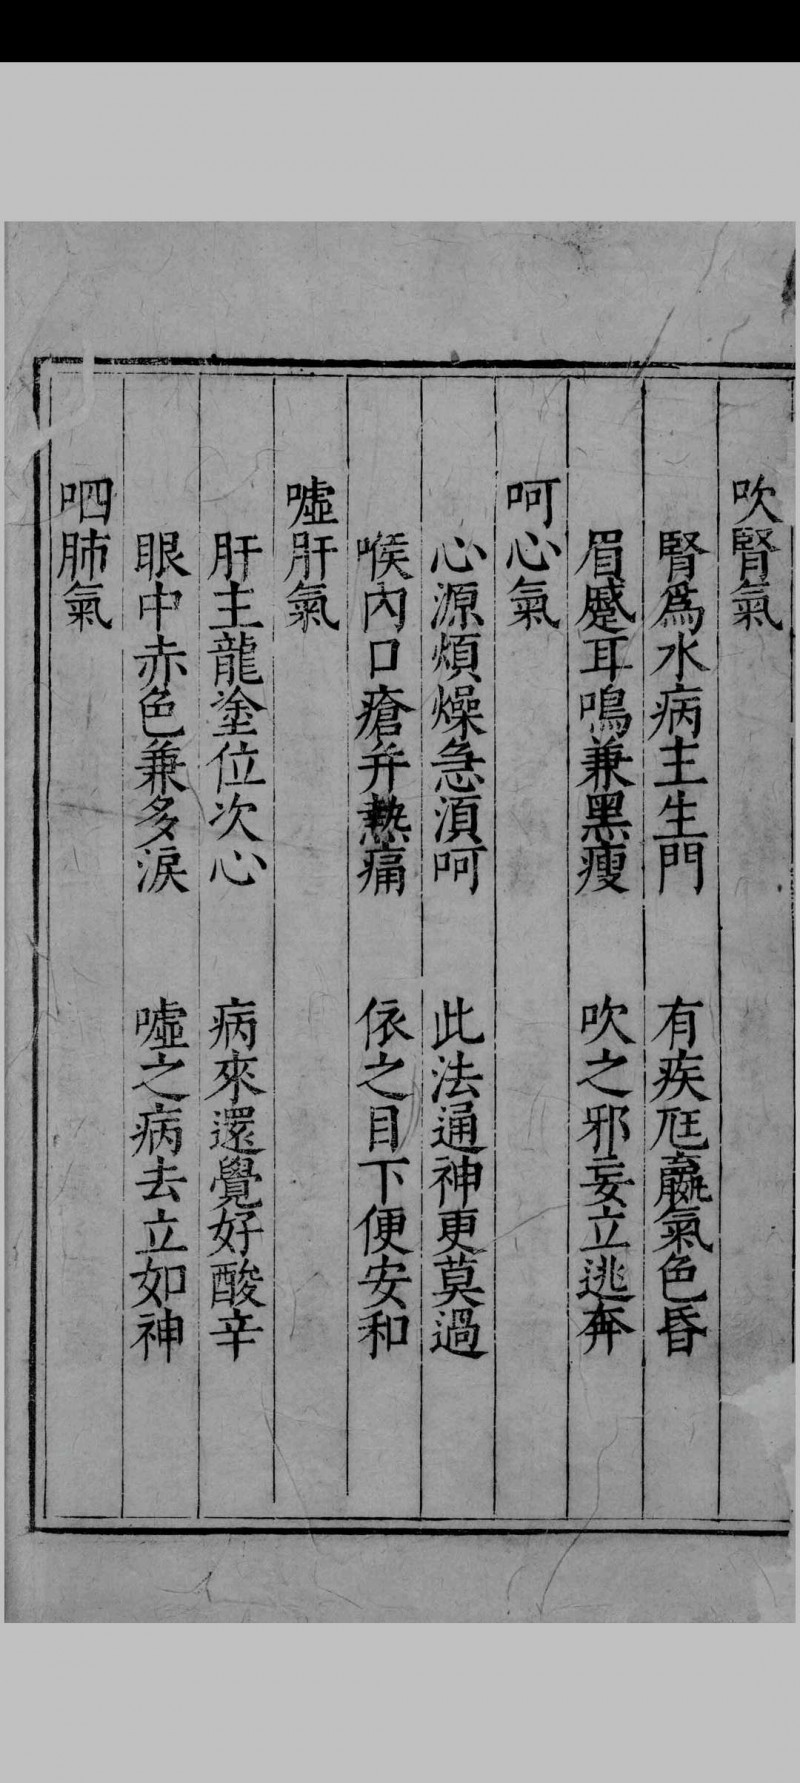 吹腎氣
腎爲水病主生門　有疾尫羸氣色昏
眉蹙耳鳴兼黑瘦　吹之邪妄立逃奔
呵心氣
心源煩燥急湏呵　此法通神更莫過
喉內口瘡并熱痛　依之目下便安和
噓肝氣
肝主龍塗位次心　病來還覺好酸辛
眼中赤色兼多淚　噓之病去立如神
呬肺氣